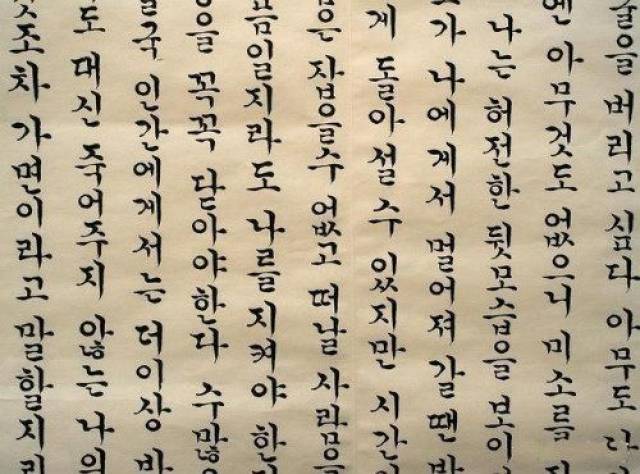 버리고 싶다 아무도
엔 아무것도 없으니 미소를
나는 허전한 뒷모습을 보이
가 나에게서 멀어져 갈 땐
게 돌아설 수 있지만 시간
은 잡을수 없고 떠날 사람을
픔일지라도 나를 지켜야 한
을 꼭꼭 닫아야한다 수많은
국 인간에게서는 더이상 바
도 대신 죽어주지 않는 나의
조차 가면이라고 말할지라